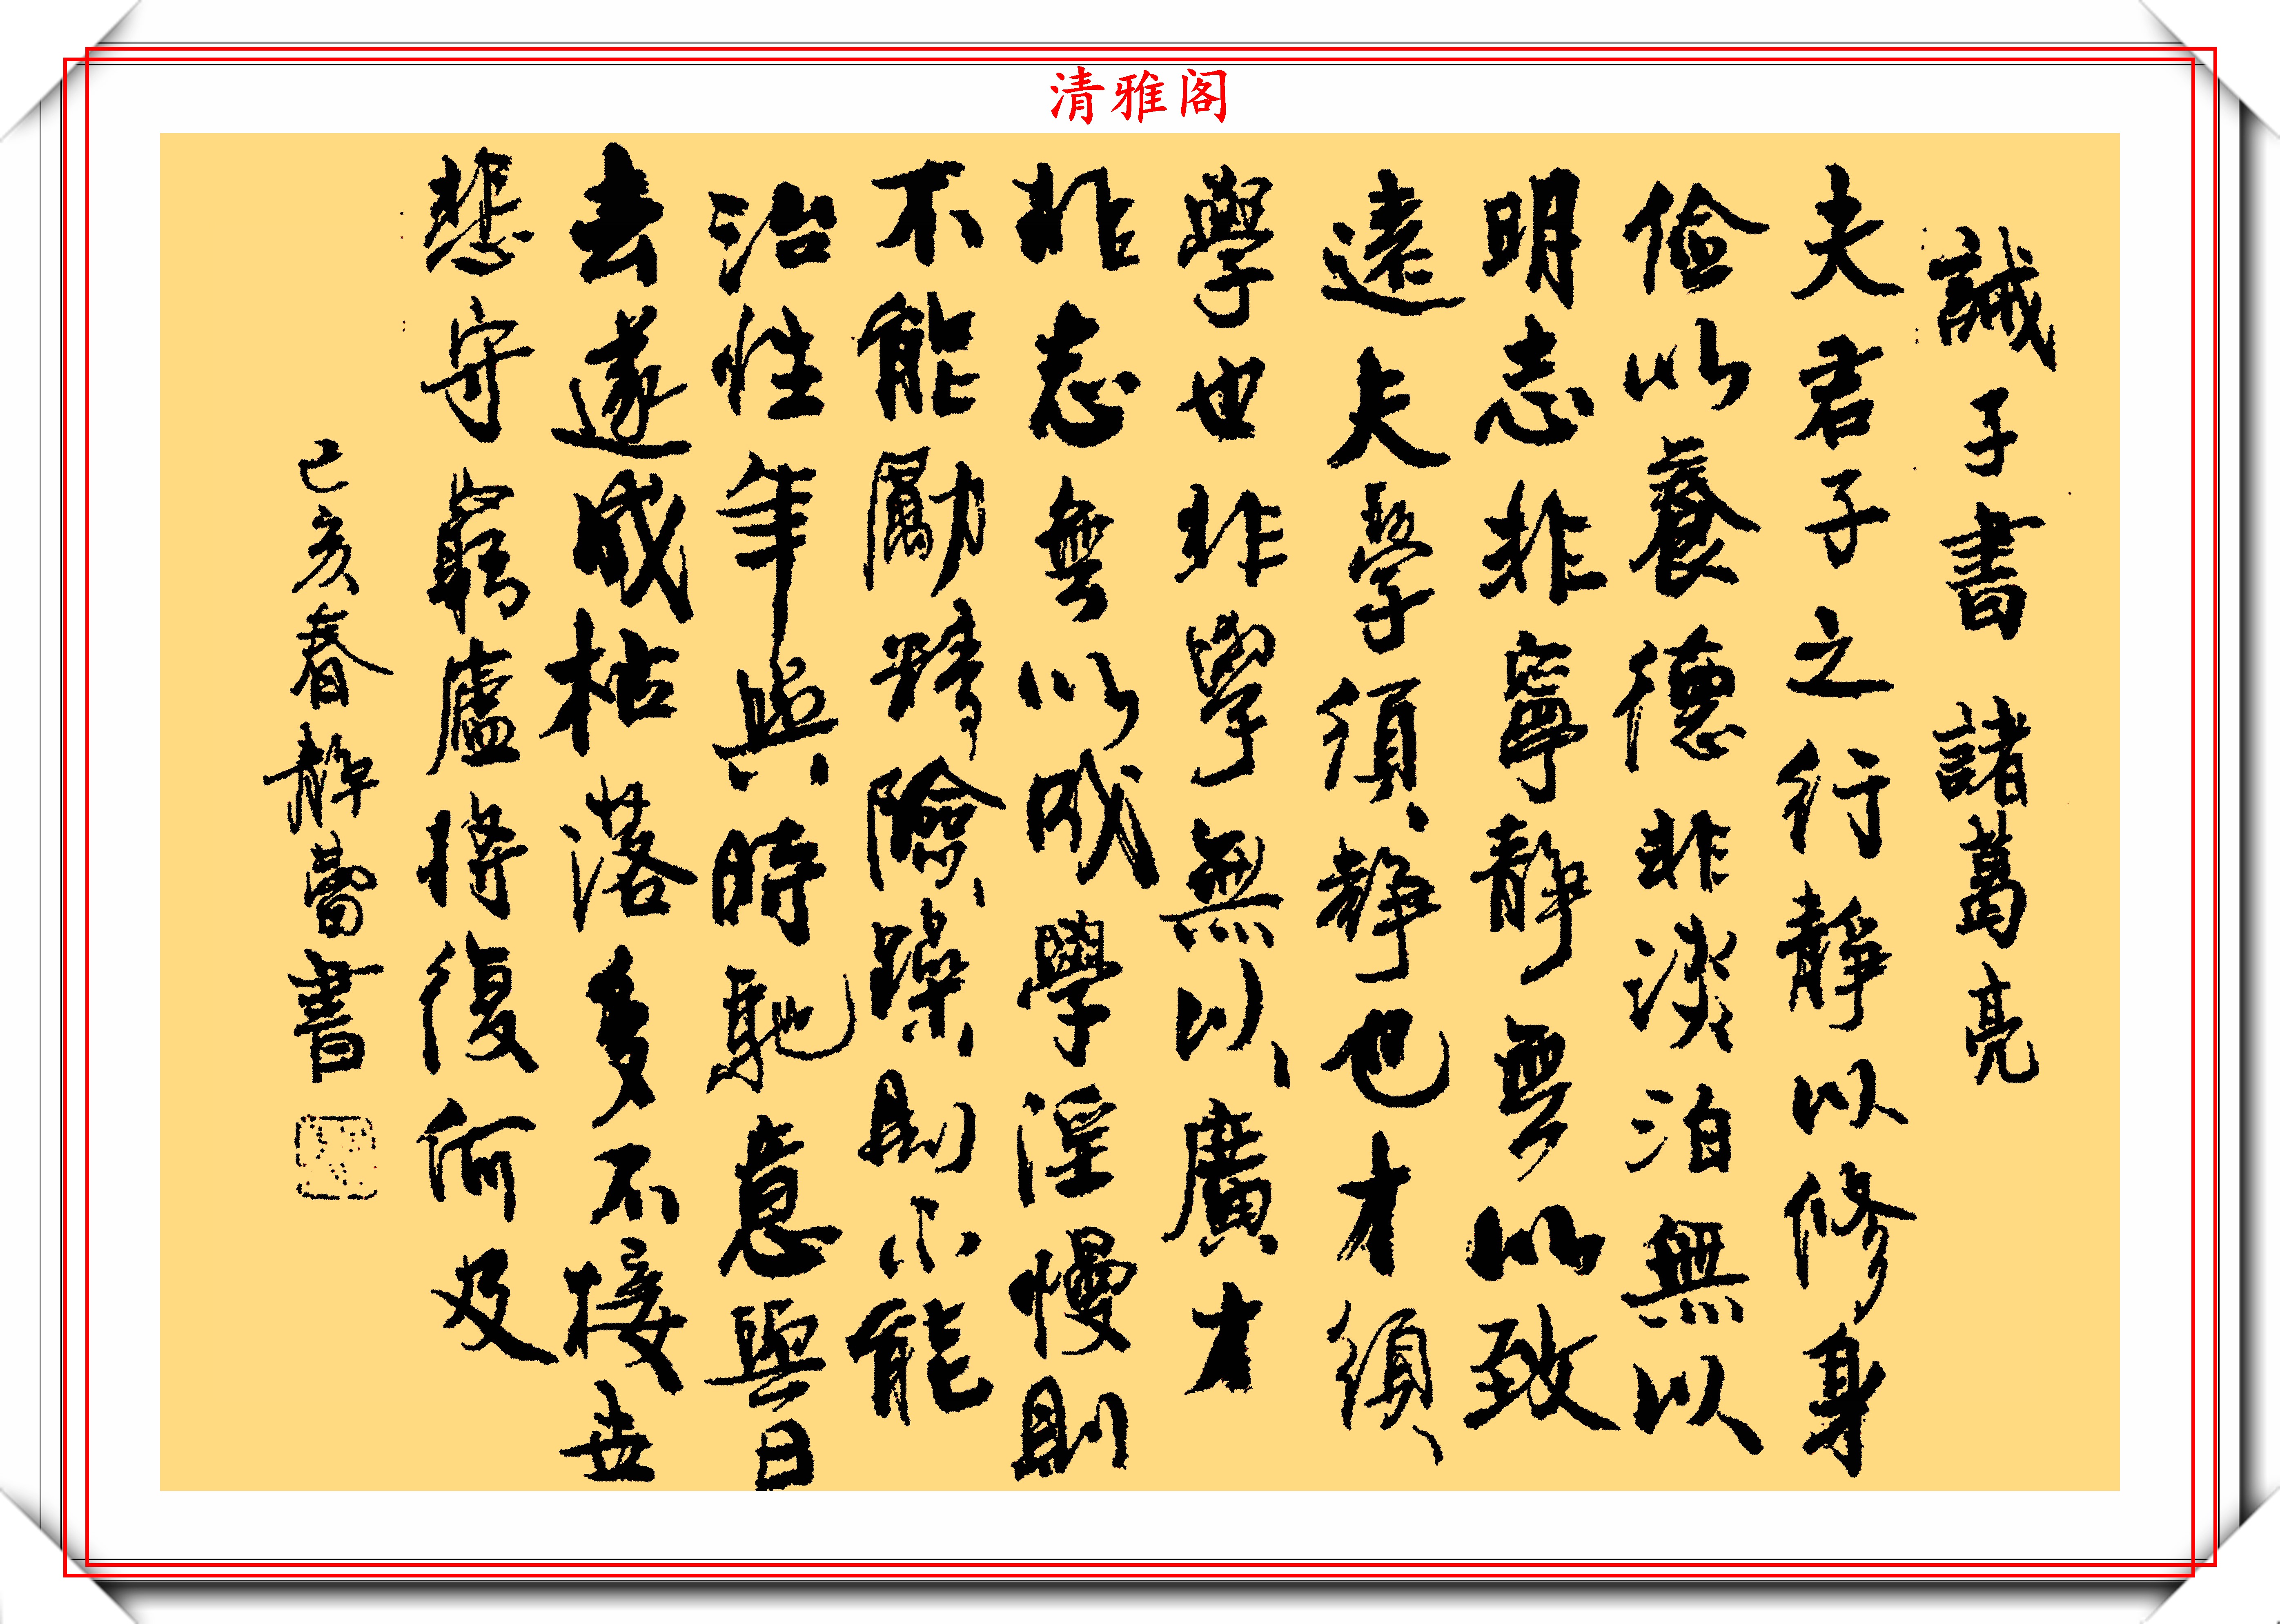 清雅阁
誡子書 諸葛亮
夫君子之行靜以修身
儉以養德非淡泊無以
明志非寧靜無以致
遠夫學須靜也才須
學也非學無以廣才
非志無以成學淫慢則
不能勵精險躁則不能
治性年與時馳意與日
去遂成枯落多不接世
悲守窮廬將復何及
己亥春靜蕾書